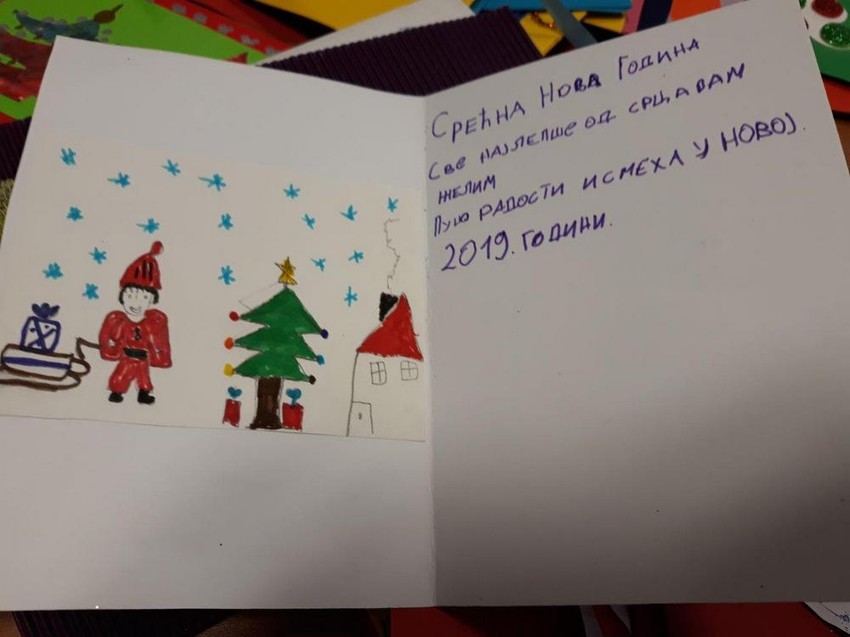 СРЕЋНА НОВА ГОДИНА
СВЕ НАЈЛЕПШЕ ОД СРЦА ВАМ
ЖЕЛИМ
ПУНО РАДОСТИ И СМЕХА У НОВОЈ.
2019. ГОДИНИ.